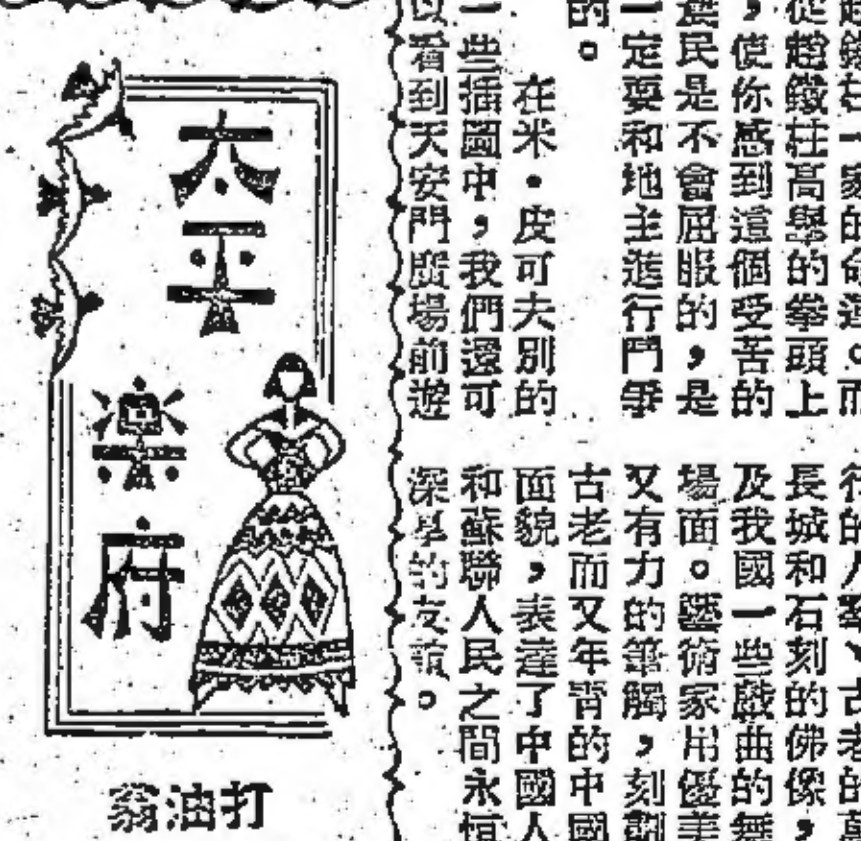 趙鐵柱一家的命運。而
從趙鐵柱高舉的拳頭上
，使你感到這個受苦的
農民是不會屈服的，是
一定要和地主進行鬥爭
的。
在米・皮可夫別的
一些插圖中，我們還可
以看到天安門廣場前遊
行的人羣、古老的萬
長城和石刻的佛像，
及我國一些戲曲的舞
場面。藝術家用優美
又有力的筆觸，刻劃
古老而又年青的中國
面貌，表達了中國人
和蘇聯人民之間永恒
深厚的友誼。
太平樂府
打油翁